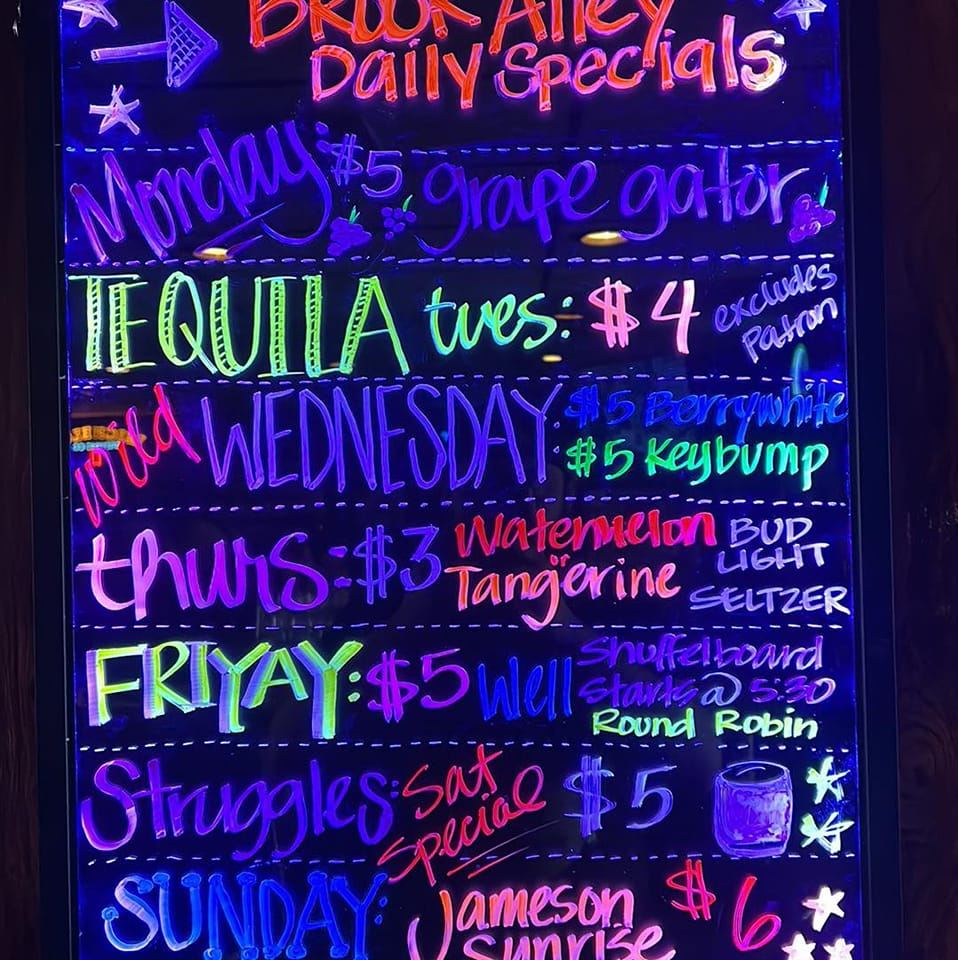 Brook Alley
Daily Specials
Monday: $5 grape gator
TEQUILA tues: $4 excludes Patron
Wild WEDNESDAY: $5 Berrywhite
$5 Keybump
thurs: $3 Watermelon or Tangerine BUD LIGHT SELTZER
FRIYAY: $5 Well Shuffelboard
Starts @ 5:30
Round Robin
Struggles: Sat Special $5
SUNDAY: Jameson Sunrise $6